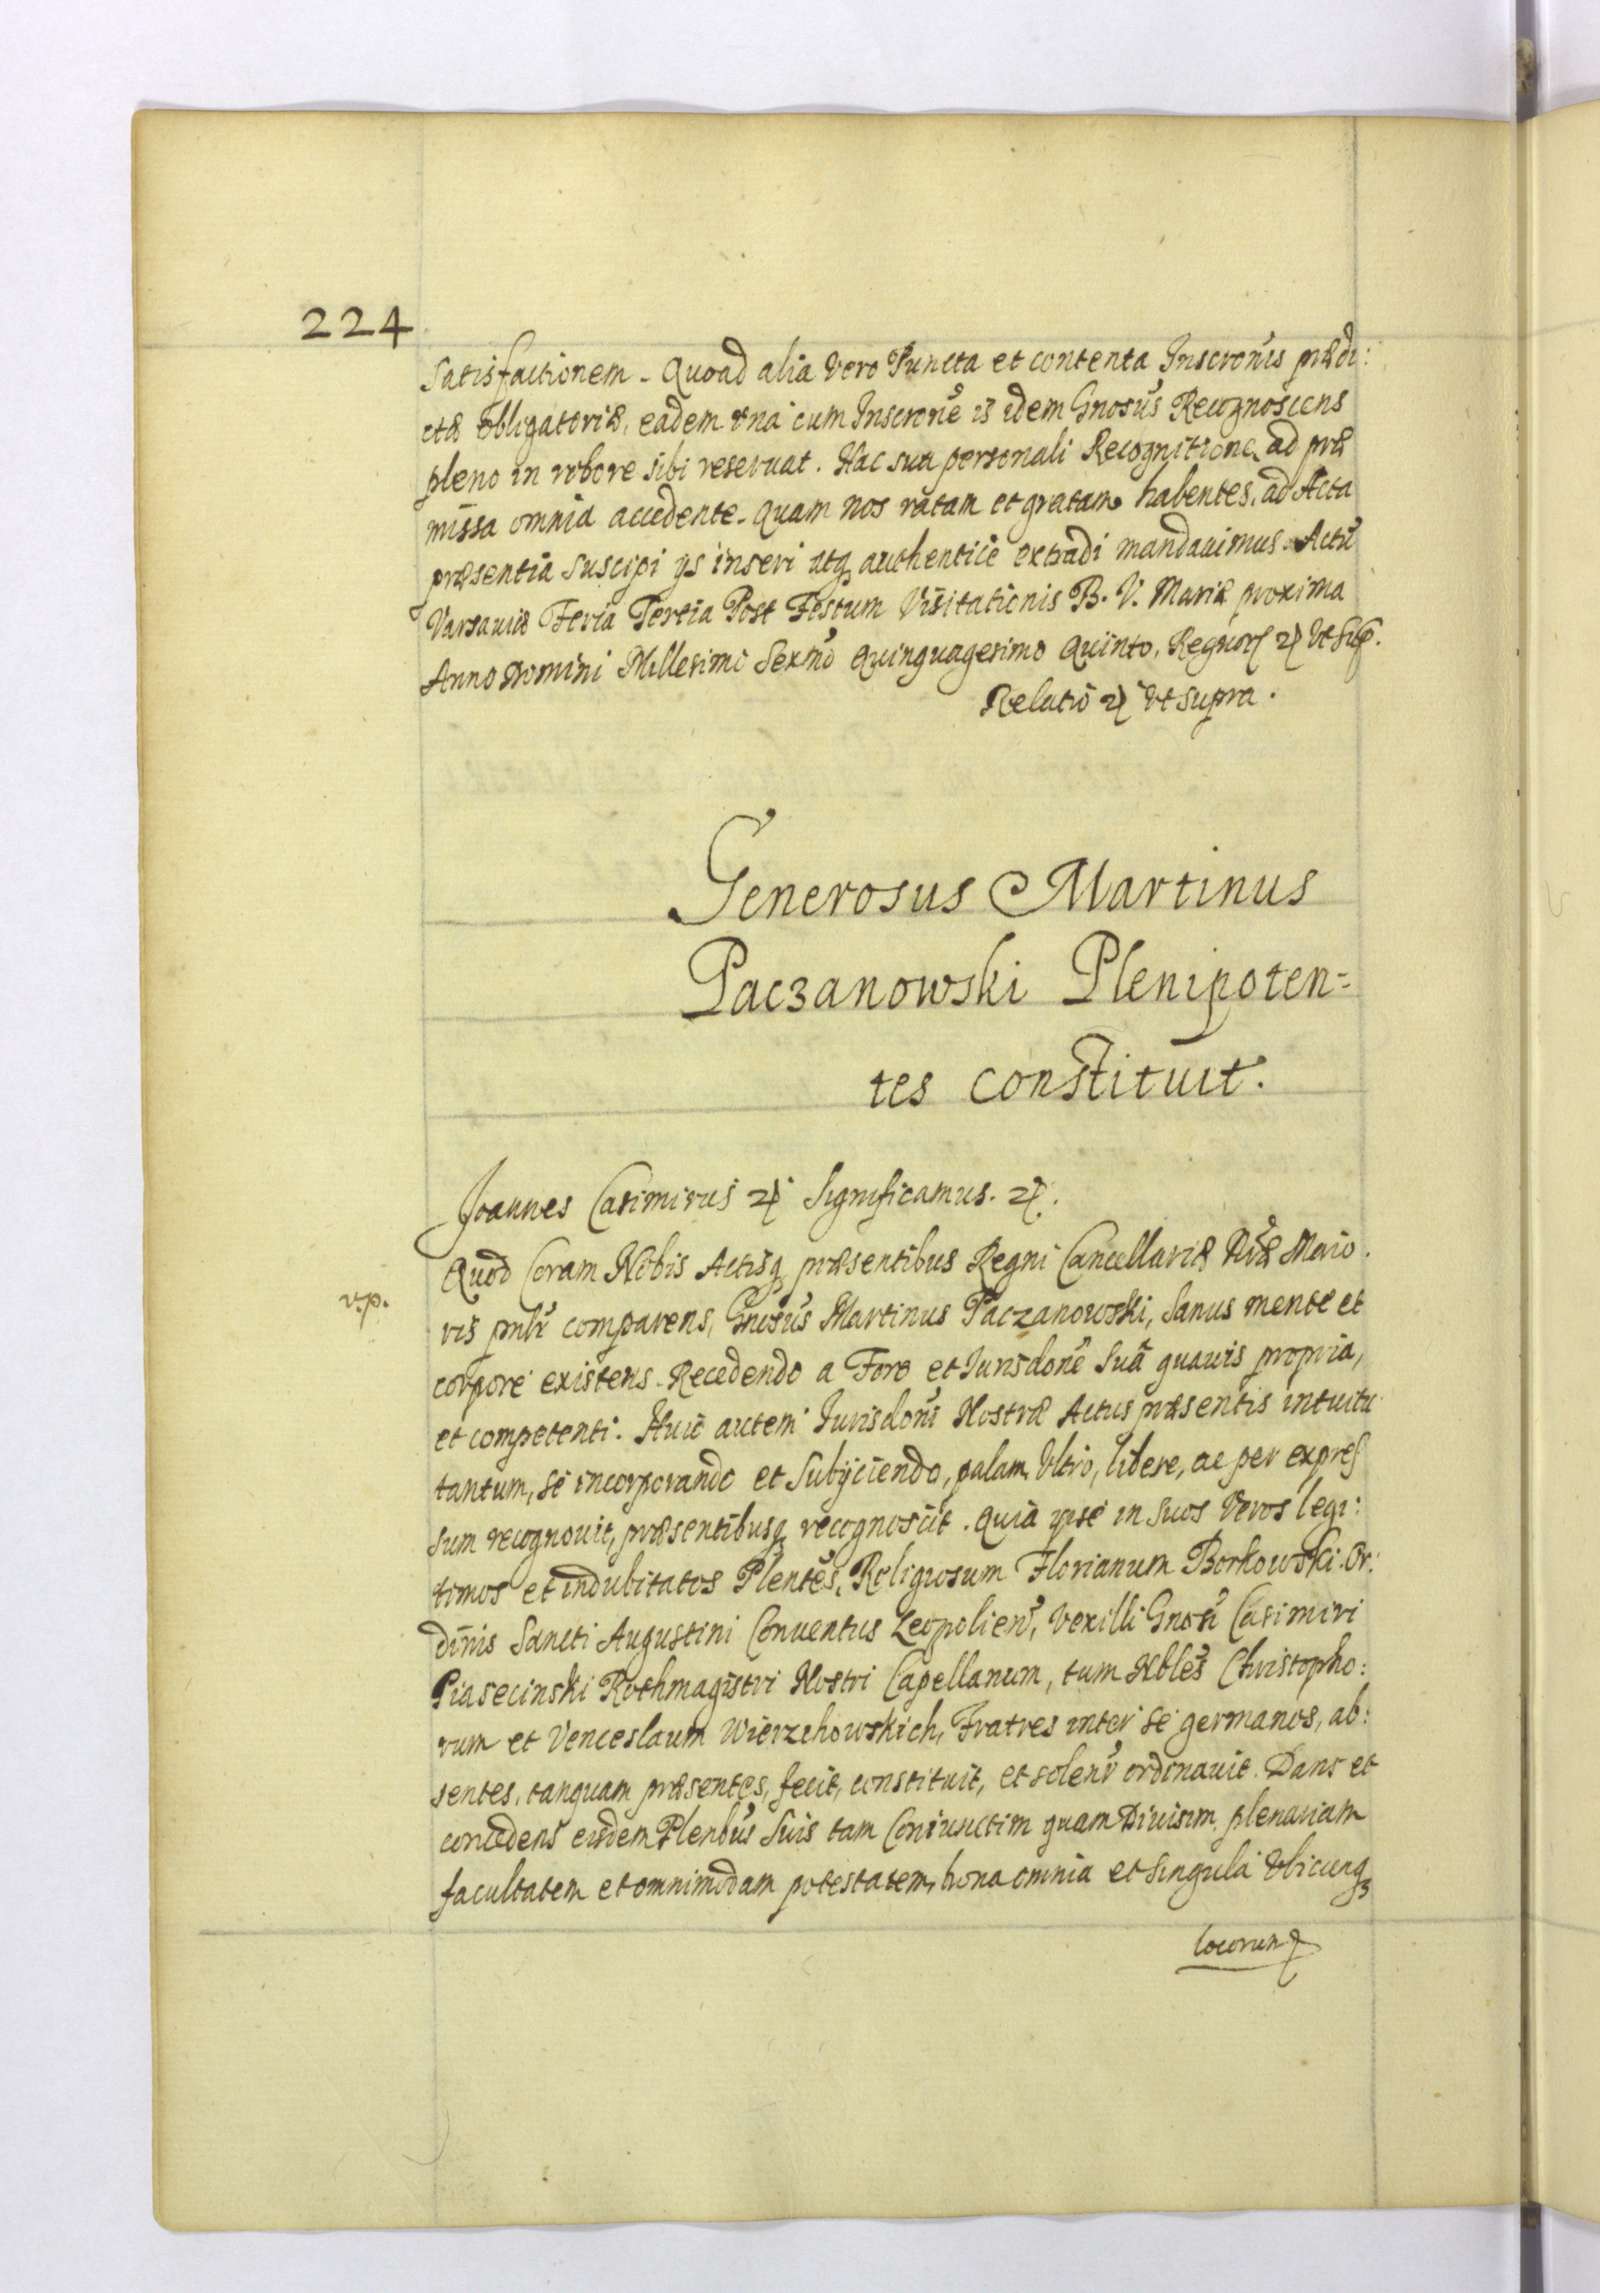 224
Satisfactionem. Quoad alia vero Puncta et contenta Inscronis prædi:
ctæ obligatoriæ, eadem una cum Inscrone is idem Gnosus Recognoscens
pleno in robore sibi reseruat. Hac sua personali Recognitione ad præ
missa omnia accedente. Quam nos ratam et gratam habentes, ad Acta
præsentia suscipi ys inseri atq authentice extradi mandauimus. Actũ
Varsauiæ Feria Tertia Post Festum Visitationis B. V. Mariæ proxima
Anno Domini Millesimo Sexmo Quinquagesimo Quinto, Regnor etc Vt Sup.
Relatio etc Vt supra.
Generosus Martinus
Paczanowski Plenipoten=
tes constituit.
Joannes Casimirus etc Significamus. etc.
Quod Coram Nobis Actisq præsentibus Regni Cancellariæ Nræ Maio.
v.p.
ris pnlr comparens, Gnosus Martinus Paczanowski, Sanus mente et
corpore existens. Recedendo a Foro et Iurisdone Suã quauis propria,
et competenti. Huic autem Iurisdoni Nostræ Actus præsentis intuitu
tantum, se incorporando et Subijciendo, palam Vltro, libere, ac per expres
sum recognouit, præsentibusq recognoscit. Quia ipse in suos Veros legi:
timos et indubitatos Plentes, Religiosum Florianum Borkowski Or:
dinis Sancti Augustini Conuentus Leopolien, Vexilli Gnosi Casimiri
Piasecinski Rothmagistri Nostri Capellanum, tum Nbles Christopho:
rum et Venceslaum Wierzchowskich, Fratres inter se germanos, ab:
sentes, tanquam præsentes, fecit, constituit, et solenr ordinauit. Dans et
concedens eisdem Plenbus Suis tam Coniunctim quam Diuisim, plenariam
facultatem et omnimodam potestatem, bona omnia et singula Vbicunq
locorum